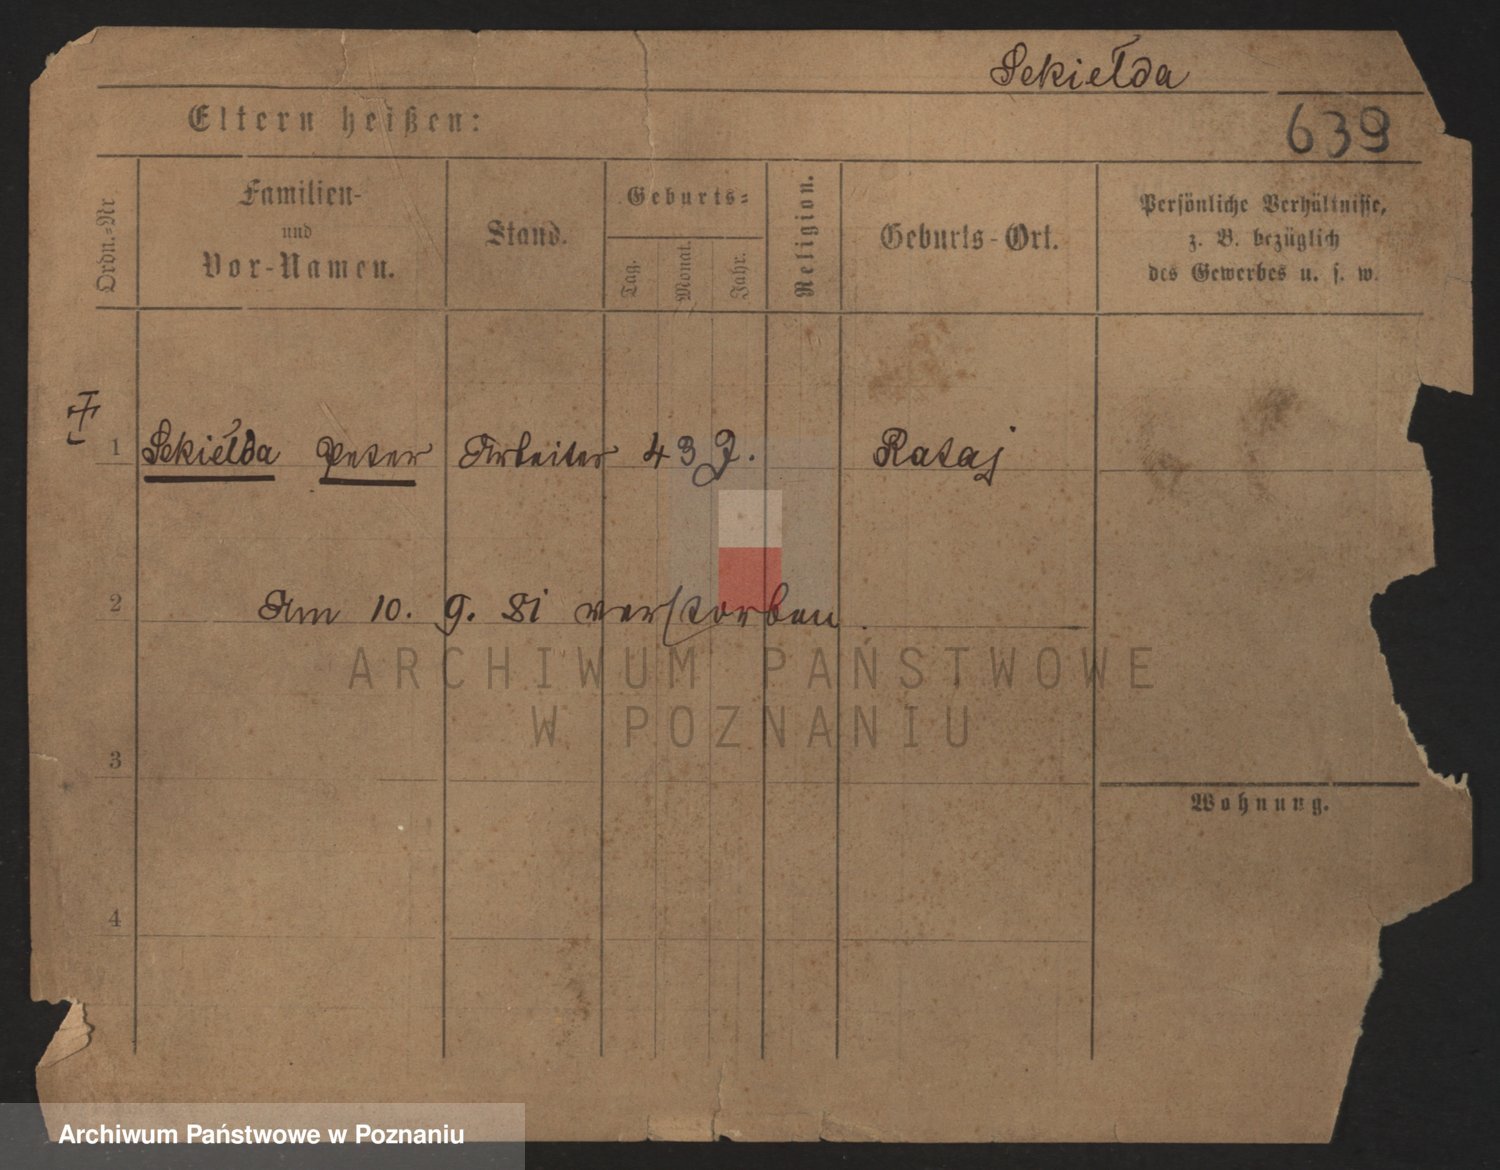 Sekiełda
639
Eltern heißen:
Ordn.-Nr
Familien-
und
Vor-Namen.
Stand.
Geburts-
Tag.
Monat.
Jahr.
Religion.
Geburts-Ort.
Persönliche Verhältnisse,
z. B. bezüglich
des Gewerbes u. s. w.
1 Sekiełda Peter Arbeiter 43 J. Rataj
2
Am 10. 9. 81 verstorben.
ARCHIWUM PAŃSTWOWE
W POZNANIU
3
Wohnung.
4
Archiwum Państwowe w Poznaniu